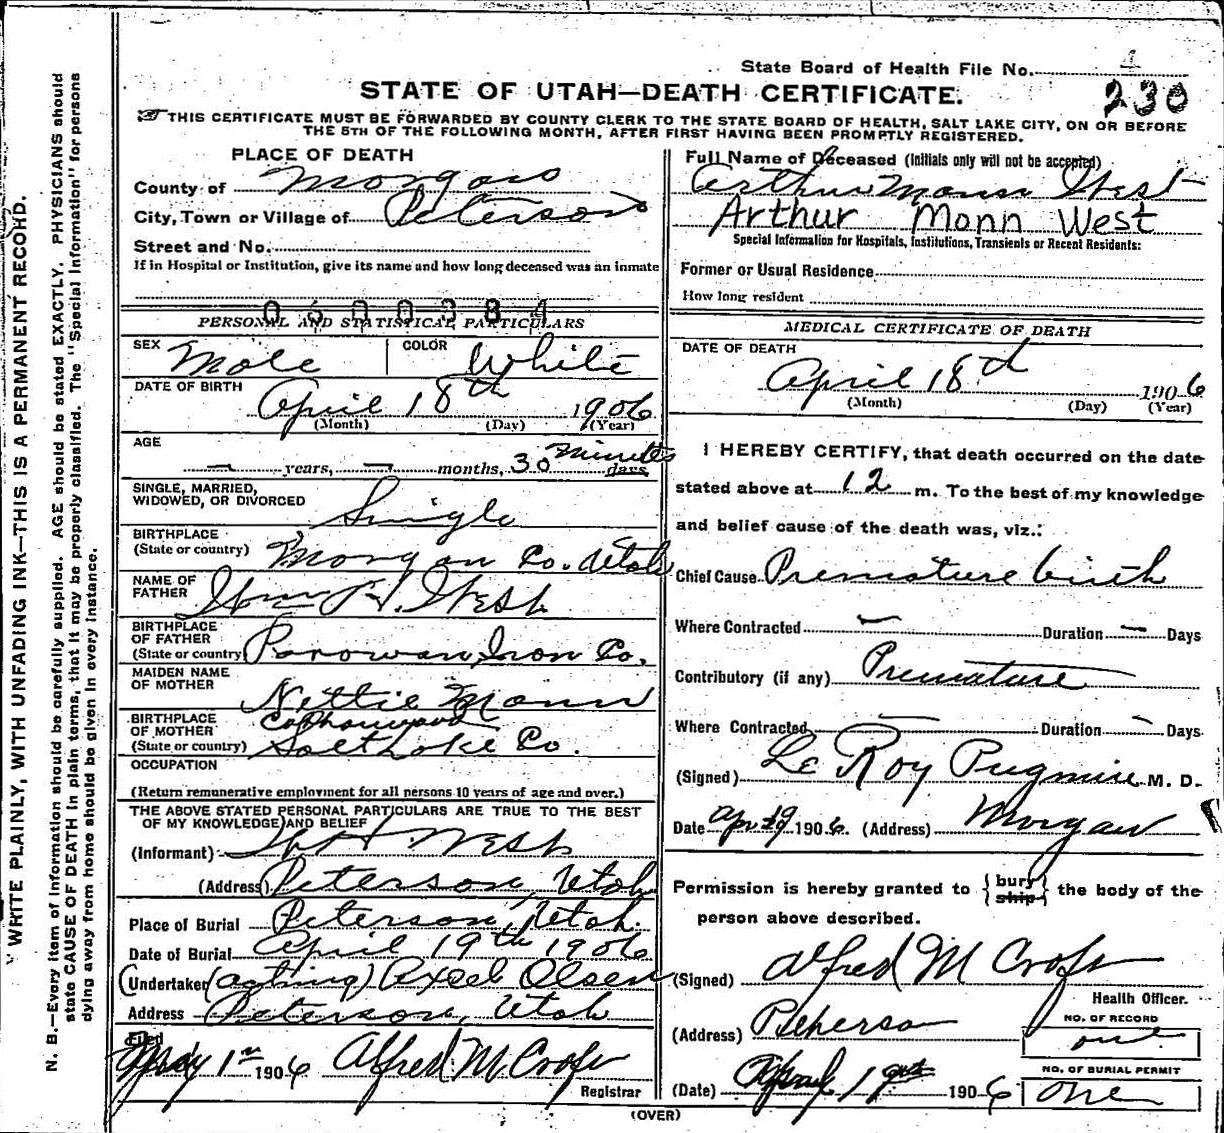 State Board of Health File No. 1
230
STATE OF UTAH—DEATH CERTIFICATE.
THIS CERTIFICATE MUST BE FORWARDED BY COUNTY CLERK TO THE STATE BOARD OF HEALTH, SALT LAKE CITY, ON OR BEFORE
THE 5TH OF THE FOLLOWING MONTH, AFTER FIRST HAVING BEEN PROMPTLY REGISTERED.
PLACE OF DEATH
County of Morgan
City, Town or Village of Peterson
Street and No.
If in Hospital or Institution, give its name and how long deceased was an inmate
PERSONAL AND STATISTICAL PARTICULARS
SEX Male COLOR White
DATE OF BIRTH
April 18th 1906
(Month) (Day) (Year)
AGE
— years, — months, 30 minutes days
SINGLE, MARRIED,
WIDOWED, OR DIVORCED Single
BIRTHPLACE
(State or country) Morgan Co. Utah
NAME OF
FATHER Wm H. West
BIRTHPLACE
OF FATHER
(State or country) Parowan, Iron Co.
MAIDEN NAME
OF MOTHER Nettie Mann
BIRTHPLACE
OF MOTHER
(State or country) Salt Lake Co.
OCCUPATION
(Return remunerative employment for all persons 10 years of age and over.)
THE ABOVE STATED PERSONAL PARTICULARS ARE TRUE TO THE BEST
OF MY KNOWLEDGE AND BELIEF
(Informant) W H West
(Address) Peterson, Utah
Place of Burial Peterson, Utah.
Date of Burial April 19th 1906
Undertaker (acting) Axel Olsen
Address Peterson, Utah
Filed
May 1st 1906 Alfred M Croft
Registrar
Full Name of Deceased (Initials only will not be accepted)
Arthur Mann West
Arthur Monn West
Special Information for Hospitals, Institutions, Transients or Recent Residents:
Former or Usual Residence
How long resident
MEDICAL CERTIFICATE OF DEATH
DATE OF DEATH
April 18th 1906
(Month) (Day) (Year)
I HEREBY CERTIFY, that death occurred on the date
stated above at 12 m. To the best of my knowledge
and belief cause of the death was, viz.:
Chief Cause Premature birth
Where Contracted — Duration — Days
Contributory (if any) Premature
Where Contracted — Duration — Days
(Signed) Le Roy Pugmire M. D.
Date Apr 19 1906. (Address) Morgan
Permission is hereby granted to {bury ship} the body of the
person above described.
(Signed) Alfred M Croft
Health Officer.
(Address) Peterson
NO. OF RECORD
one
(Date) April 19th 1906
NO. OF BURIAL PERMIT
one
(OVER)
WRITE PLAINLY, WITH UNFADING INK—THIS IS A PERMANENT RECORD.
N. B.—Every item of information should be carefully supplied. AGE should be stated EXACTLY. PHYSICIANS should
state CAUSE OF DEATH in plain terms, that it may be properly classified. The "Special Information" for persons
dying away from home should be given in every instance.